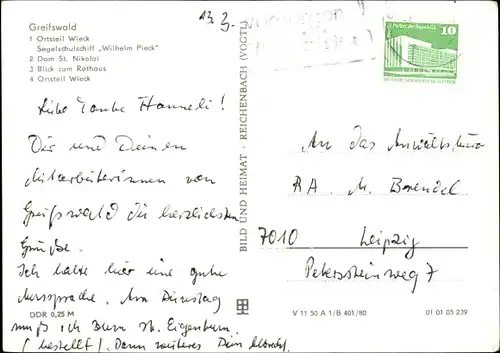 Greifswald
1 Ortsteil Wieck
Segelschulschiff „Wilhelm Pieck"
2 Dom St. Nikolai
3 Blick zum Rathaus
4 Ortsteil Wieck
13. 3.
10
Liebe Tante Hanneli!
Dir und Deinen
Mitarbeiterinnen von
Greifswald die herzlichsten
Grüße.
Ich hatte hier eine gute
Aussprache. Am Dienstag
muß ich zum St. Eigentum
(bestellt). Dann weiteres Dein
DDR 0,25 M
BILD UND HEIMAT · REICHENBACH (VOGTL)
An das Anwaltsbüro
RA. M. Berendel
7010 Leipzig
Petersteinweg 7
V 11 50 A 1/B 401/80
01 01 05 239